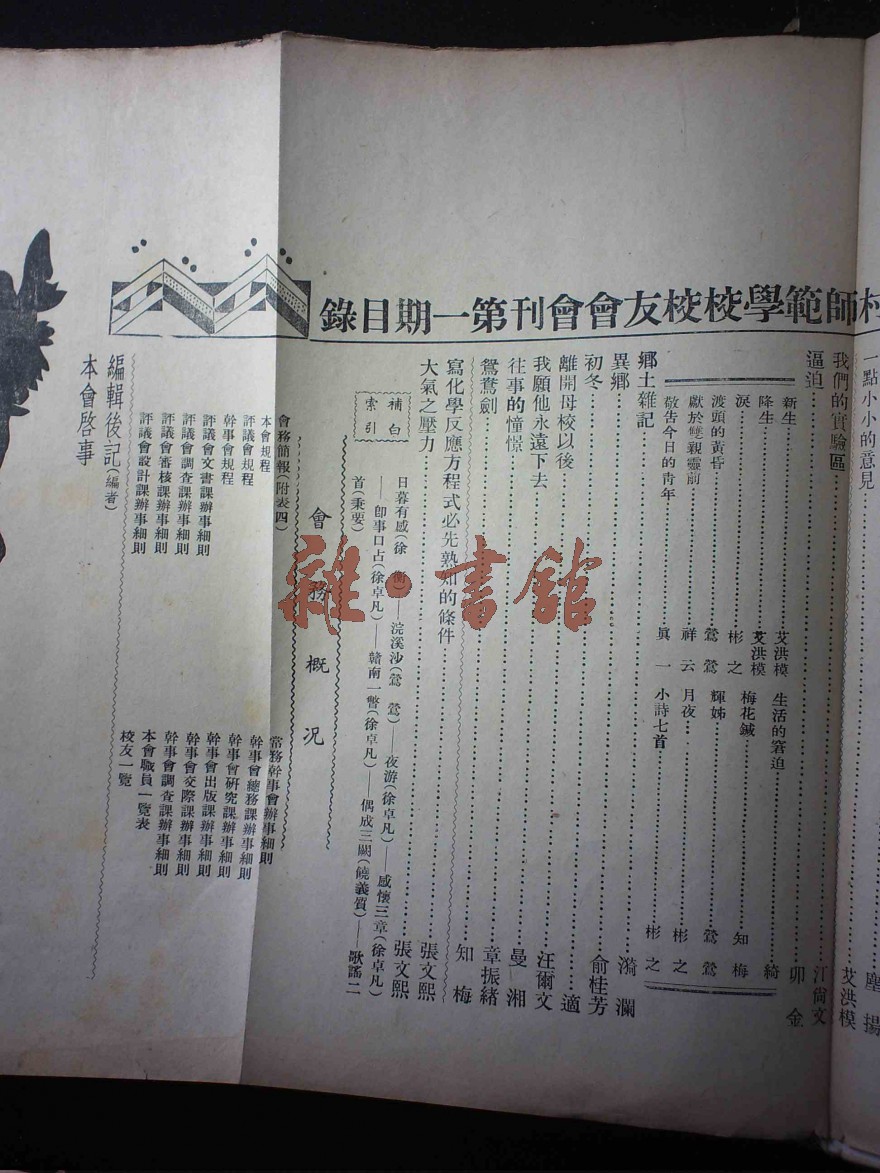 村師範學校校友會會刊第一期目錄
塵揚
一點小小的意見 艾洪模
我們的實驗區 江尙文
逼迫 卯金
新生 艾洪模 生活的窘迫 綺
降生 艾洪模 梅花鍼 知梅
淚 彬之
渡頭的黃昏 鶯鶯 輝姊 鶯鶯
獻於雙親靈前 祥云 月夜 彬之
敬告今日的靑年 眞一 小詩七首 彬之
鄉土雜記 漪瀾
異鄉 俞桂芳
初冬 適
離開母校以後 汪爾文
我願他永遠下去 曼湘
往事的憧憬 章振緒
鴛鴦劍 知梅
寫化學反應方程式必先熟知的條件 張文熙
大氣之壓力 張文熙
補白
索引
日暮有感(徐衡)——浣溪沙(鶯鶯)——夜游(徐卓凡)——感懷三章(徐卓凡)
——卽事口占(徐卓凡)——贛南一瞥(徐卓凡)——偶成三闋(饒義質)——歌謠二
首(秉要)
會務概况
會務簡報(附表四)
本會規程
評議會規程
幹事會規程
評議會文書課辦事細則
評議會調查課辦事細則
評議會審核課辦事細則
評議會設計課辦事細則
常務幹事會辦事細則
幹事會總務課辦事細則
幹事會硏究課辦事細則
幹事會出版課辦事細則
幹事會交際課辦事細則
幹事會調查課辦事細則
本會職員一覽表
校友一覽
編輯後記(編者)
本會啓事
雜·書館